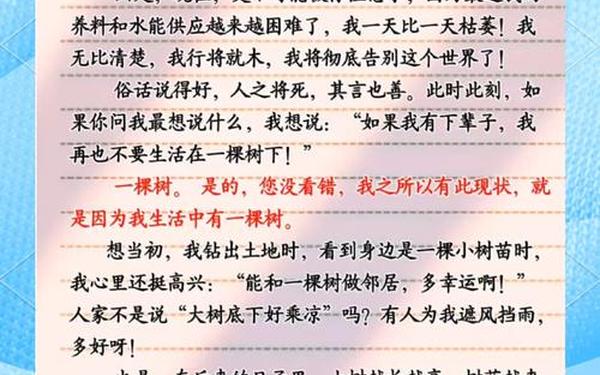 养料和水能供应越来越困难了，我一天比一天枯萎！我
无比清楚，我行将就木，我将彻底告别这个世界了！
俗话说得好，人之将死，其言也善。此时此刻，如
果你问我最想说什么，我想说：“如果我有下辈子，我
再也不要生活在一棵树下！”
一棵树。 是的，您没看错，我之所以有此现状，就
是因为我生活中有一棵树。
想当初，我钻出土地时，看到身边是一棵小树苗时，
我心里还挺高兴：“能和一棵树做邻居，多幸运啊！”
人家不是说“大树底下好乘凉”吗？有人为我遮风挡雨，
多好呀！